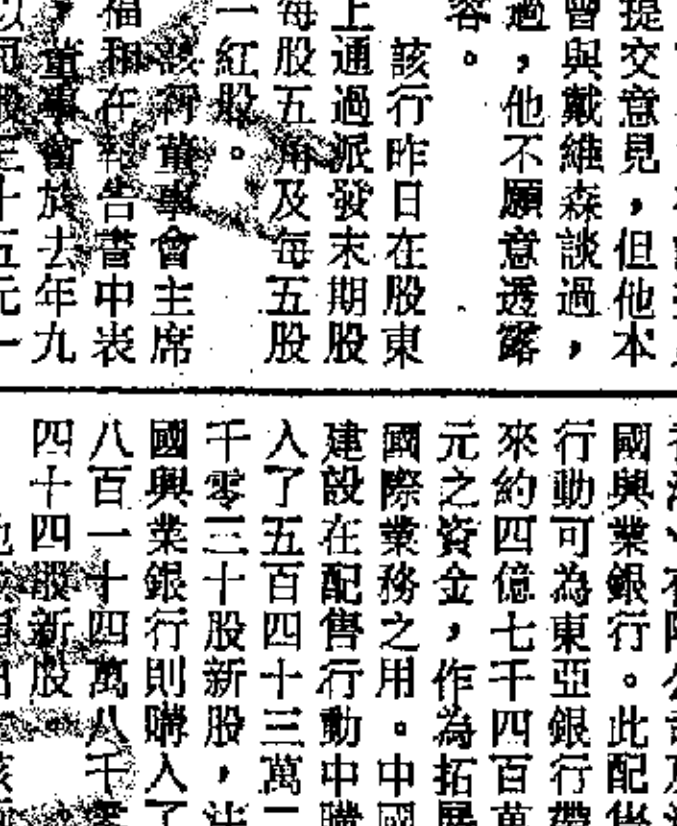 提交意見，但他本
曾與戴維森談過，
過，他不願意透露
容。
該行昨日在股東
上通過派發末期股
每股五角及每五股
一紅股。
該行董事會主席
福和在報告書中表
，董事會於去年九
股三十五元一
國興業銀行。此配售
行動可為東亞銀行帶
來約四億七千四百萬
元之資金，作為拓展
國際業務之用。中國
建設在配售行動中購
入了五百四十三萬二
千零三十股新股，
國興業銀行則購入了
八百一十四萬八千零
四十四股新股。